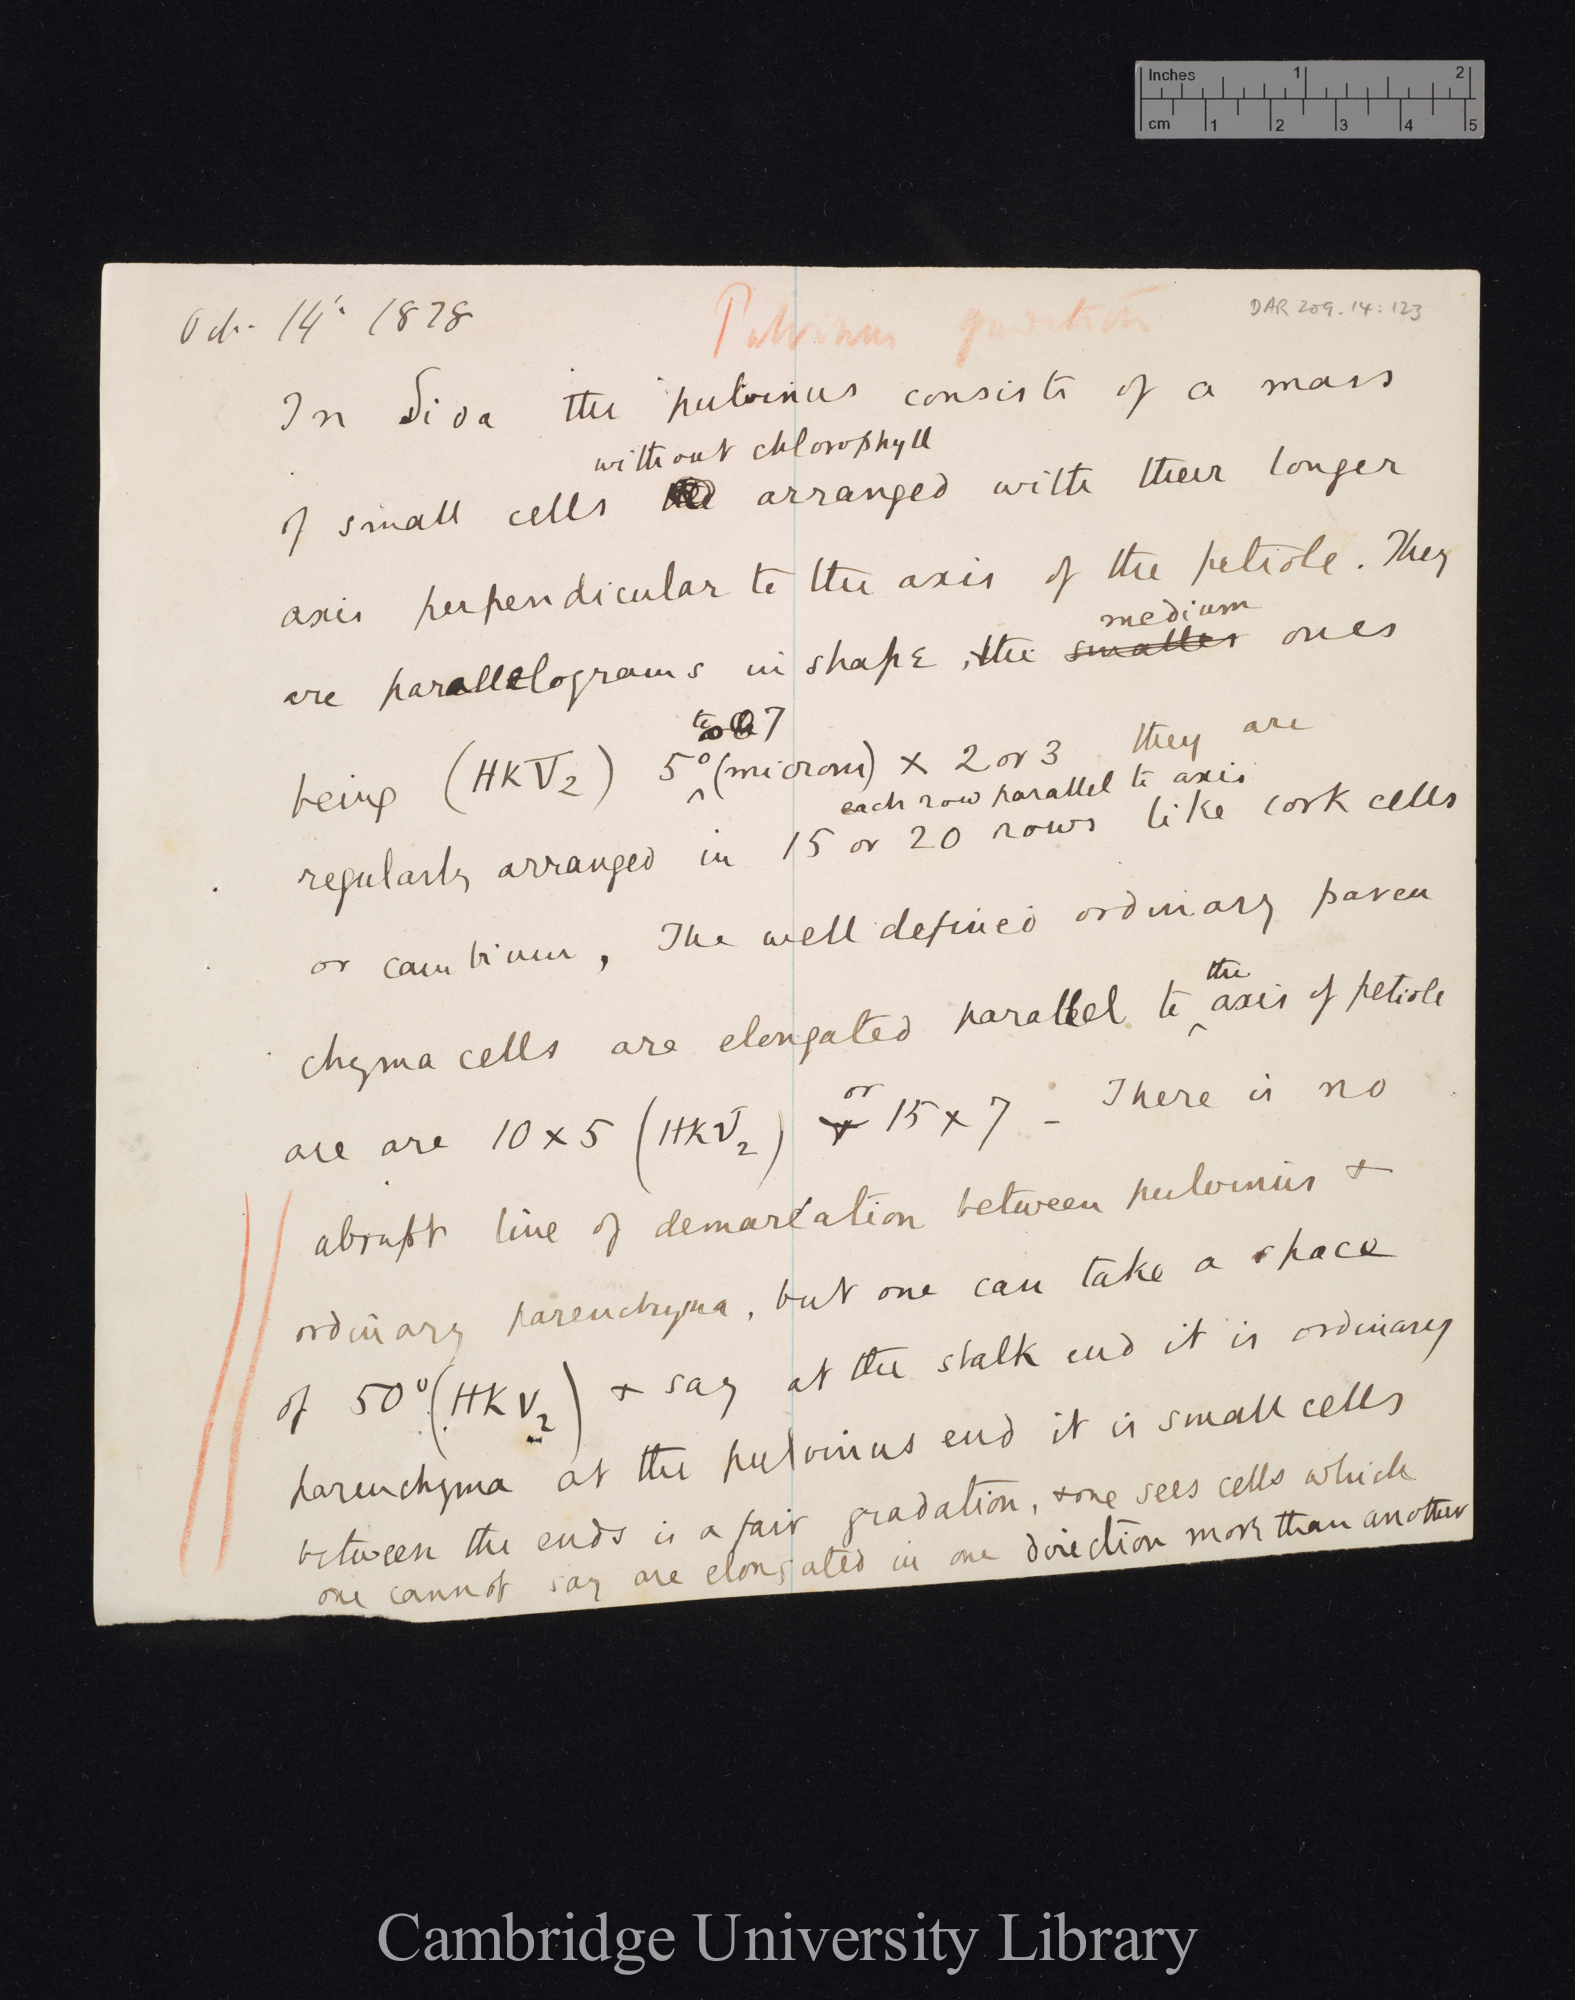 Inches 1 2
cm 1 2 3 4 5
Oct. 14th 1878
Pulvinus gradation
DAR 209.14:123
In Sida the pulvinus consists of a mass
without chlorophyll
of small cells arranged with their longer
axis perpendicular to the axis of the petiole. They
medium
are parallelograms in shape, the smaller ones
to 7
being (HKV2) 5° (microm) × 2 or 3 they are
each row parallel to axis
regularly arranged in 15 or 20 rows like cork cells
or cambium, The well defined ordinary paren
the
chyma cells are elongated parallel to axis of petiole
or
are are 10 × 5 (HKV2) 15 × 7 – There is no
abrupt line of demarcation between pulvinus &
ordinary parenchyma, but one can take a space
of 50° (HKV2) & say at the stalk end it is ordinary
parenchyma at the pulvinus end it is small cells
between the ends is a fair gradation, & one sees cells which
one cannot say are elongated in one direction more than another
Cambridge University Library